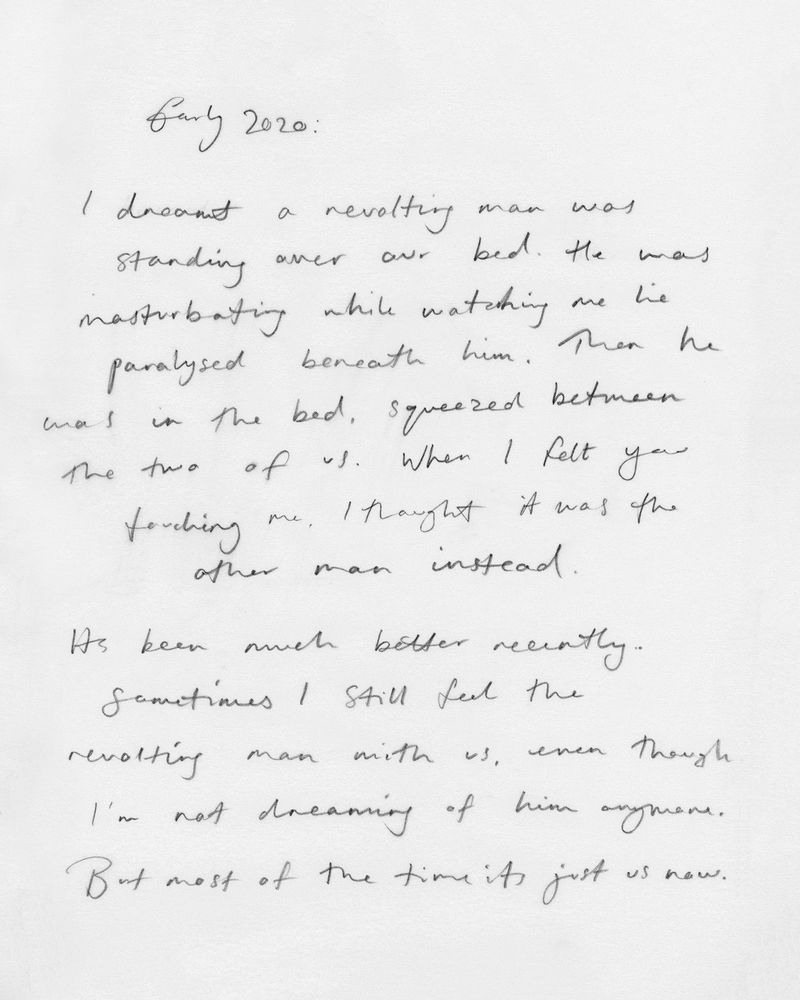 Early 2020:
I dreamt a revolting man was
standing over our bed. He was
masturbating while watching me lie
paralysed beneath him. Then he
was in the bed, squeezed between
the two of us. When I felt you
touching me, I thought it was the
other man instead.
Its been much better recently.
Sometimes I still feel the
revolting man with us, even though
I'm not dreaming of him anymore.
But most of the time its just us now.